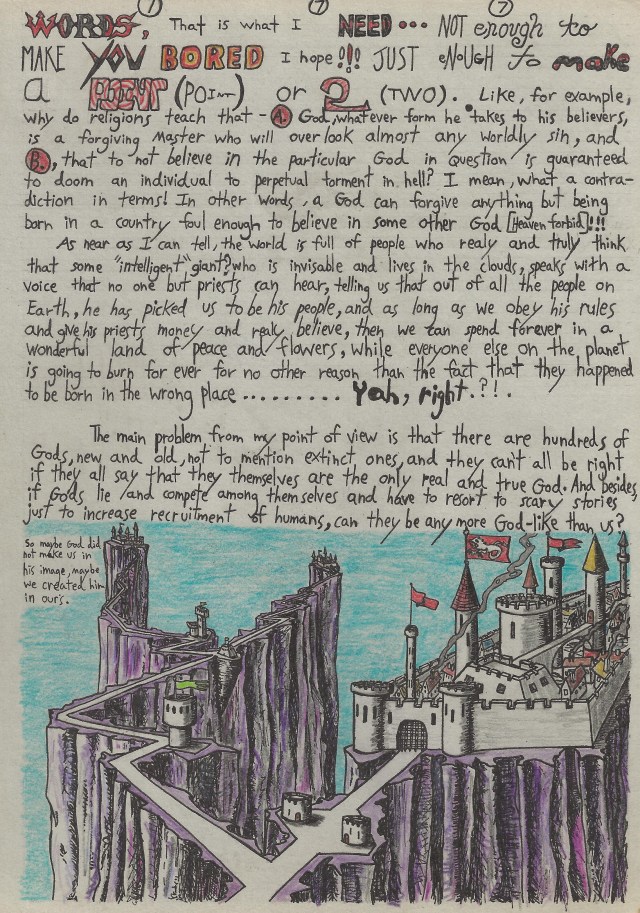 7 7 7
WORDS, That is what I NEED... NOT enough to
MAKE YOU BORED I hope!!! JUST eNoUGH To make
a POINT (POINT) or 2 (TWO). Like, for example,
why do religions teach that - A. God, whatever form he takes to his believers,
is a forgiving Master who will over look almost any worldly sin, and
B., that to not believe in the particular God in question is guaranteed
to doom an individual to perpetual torment in hell? I mean, what a contra-
diction in terms! In other words, a God can forgive anything but being
born in a country foul enough to believe in some other God [Heaven forbid]!!!
As near as I can tell, the world is full of people who realy and truly think
that some "intelligent" giant? who is invisable and lives in the clouds, speaks with a
voice that no one but priests can hear, telling us that out of all the people on
Earth, he has picked us to be his people, and as long as we obey his rules
and give his priests money and realy believe, then we can spend forever in a
wonderful land of peace and flowers, while everyone else on the planet
is going to burn for ever for no other reason than the fact that they happened
to be born in the wrong place ......... Yah, right.?!.
The main problem from my point of view is that there are hundreds of
Gods, new and old, not to mention extinct ones, and they can't all be right
if they all say that they themselves are the only real and true God. And besides,
if Gods lie and compete among themselves and have to resort to scary stories
just to increase recruitment of humans, can they be any more God-like than us?
So maybe God did
not make us in
his image, maybe
we created him
in our's.